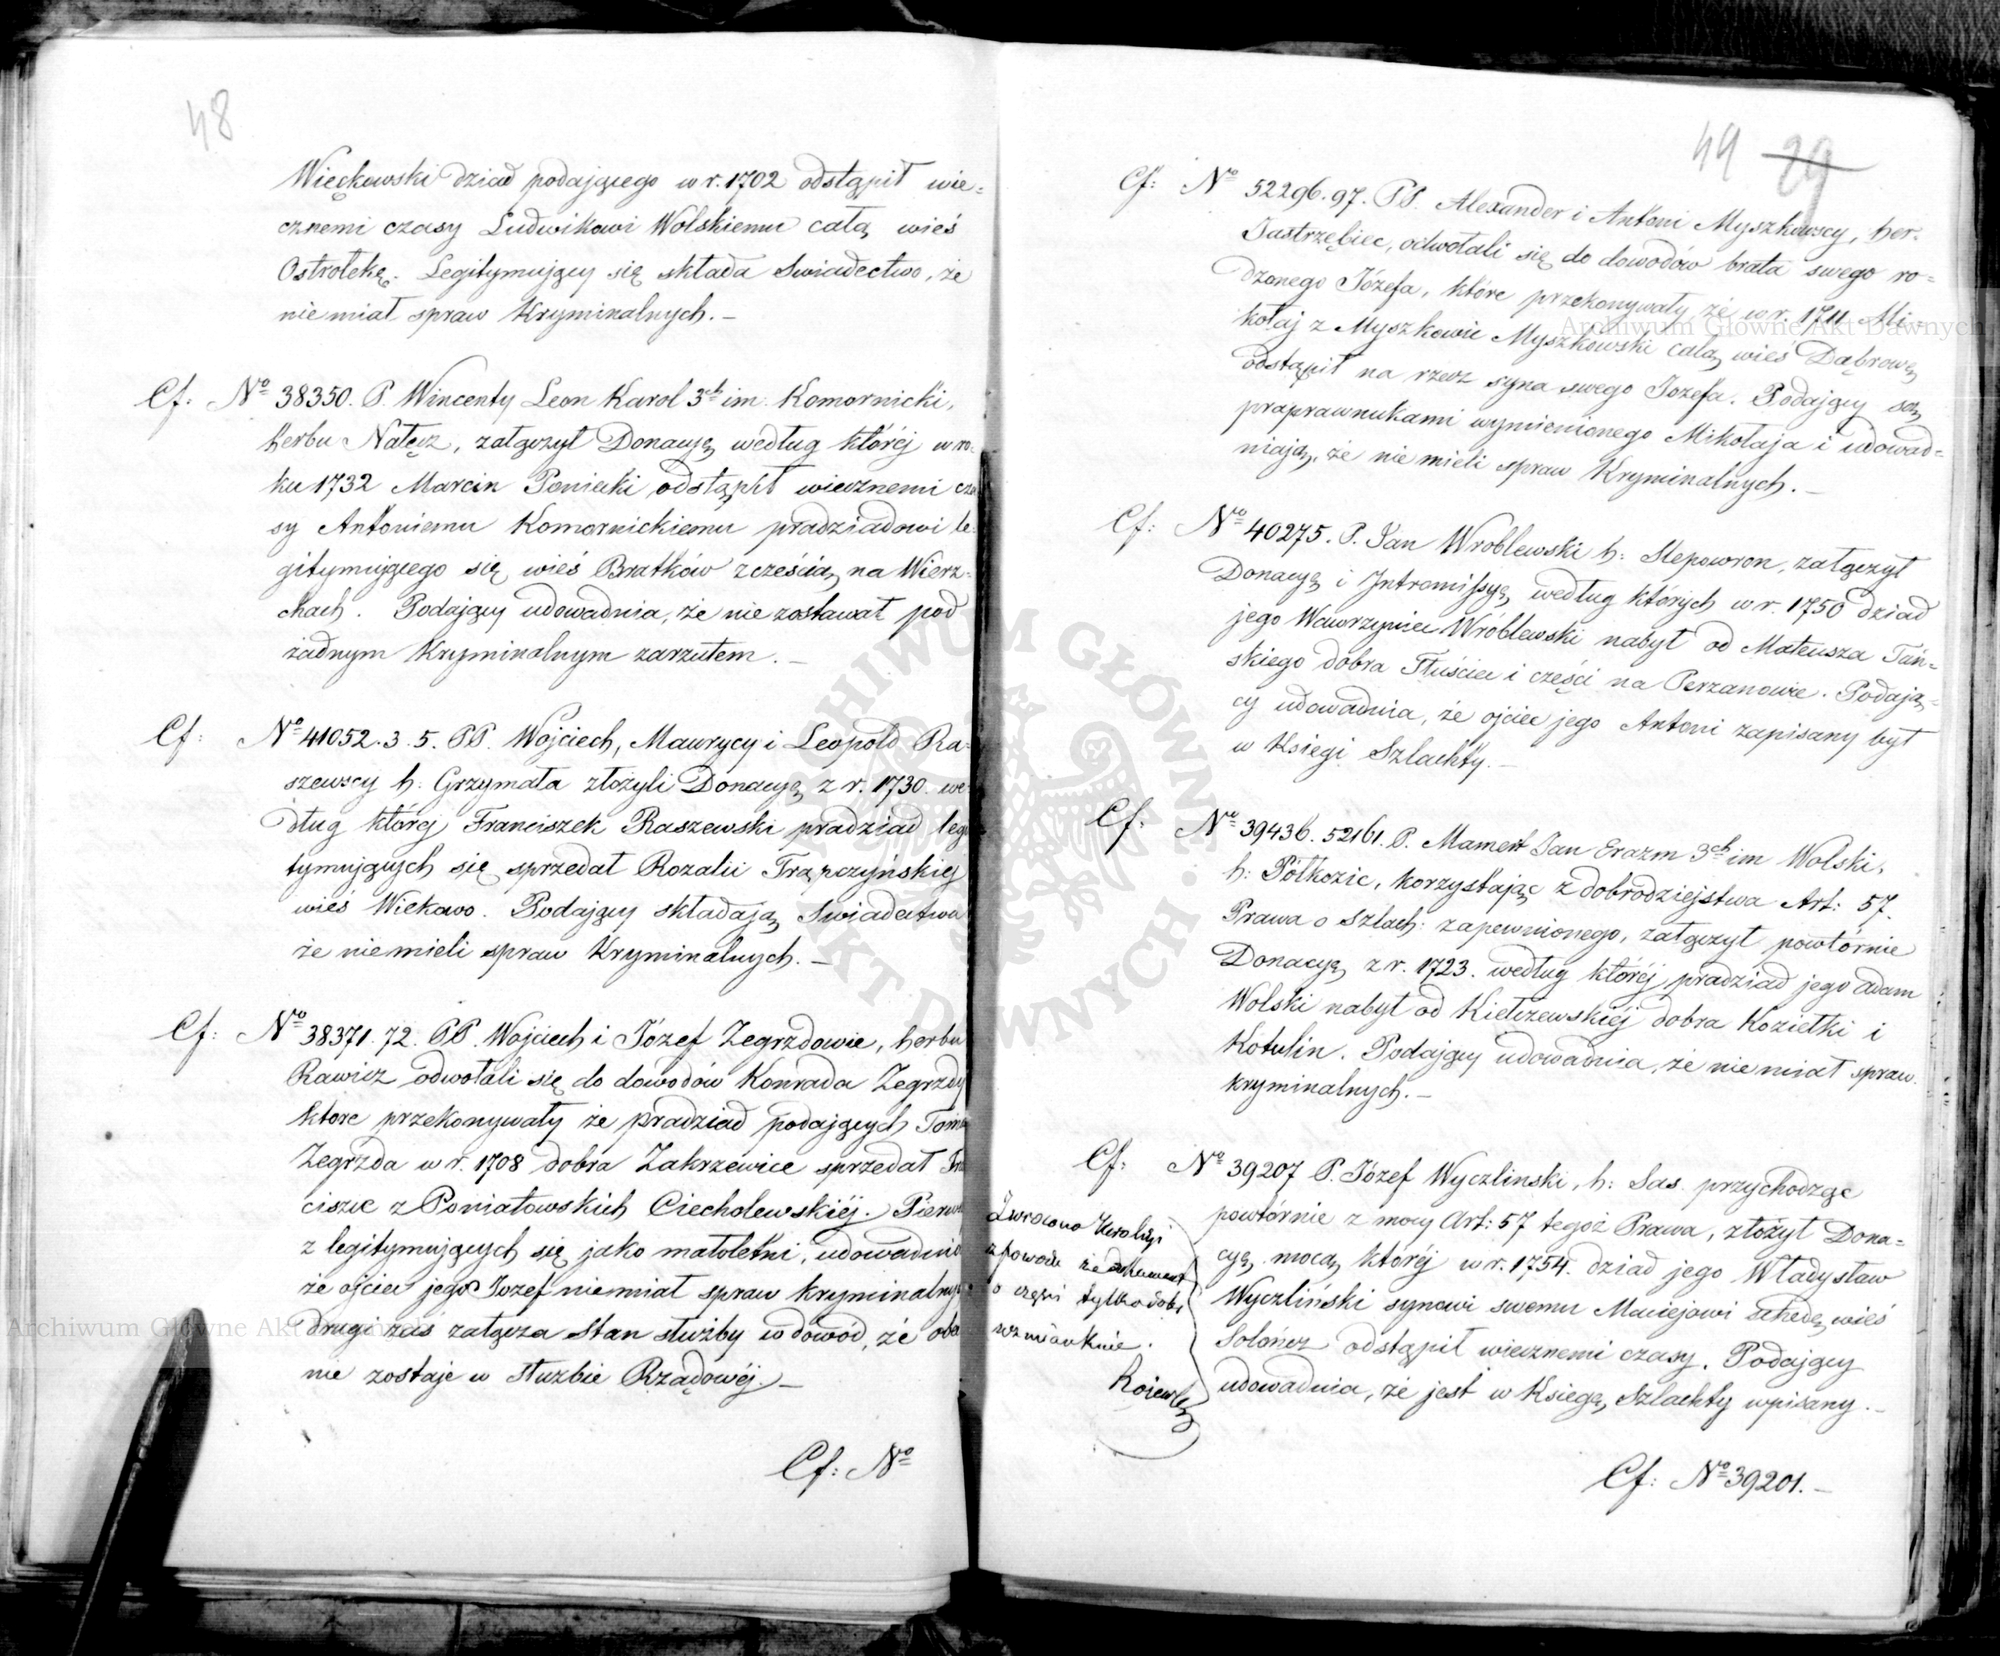 48
Więckowski dziad podającego w r. 1702 odstąpił wie=
cznemi czasy Ludwikowi Wolskiemu całą wieś
Ostrołękę. Legitymujący się składa Świadectwo, że
nie miał spraw Kryminalnych. –
Cf: Nº 38350. P. Wincenty Leon Karol 3ch im. Komornicki,
herbu Nałęcz, załączył Donacyą według któréj w ro-
ku 1732 Marcin Poniecki odstąpił wiecznemi cza
sy Antoniemu Komornickiemu pradziadowi le-
gitymującego się wieś Bratków z cześcią na Wierz-
chach. Podający udowadnia, że nie zostawał pod
żadnym Kryminalnym zarzutem. –
Cf: Nº 41052.3.5. PP. Wojciech, Maurycy i Leopold Ra-
szewscy h: Grzymała złożyli Donacyą z r. 1730. we-
dług któréj Franciszek Raszewski pradziad legi
tymujących się sprzedał Rozalii Trąpczyńskiej
wieś Wiekowo. Podający składają Świadectwa
że nie mieli spraw Kryminalnych. –
Cf: Nº 38371.72. PP. Wojciech i Józef Zegrzdowie, herbu
Rawicz odwołali się do dowodów Konrada Zegrzdy
ktore przekonywały że pradziad podających Tom
Zegrzda w r. 1708 dobra Zakrzewice sprzedał Fra
ciszce z Poniatowskich Ciecholewskiéj. Pierw
z legitymujących się jako małoletni, udowadnia
że ojciec jego Jozef nie miał spraw kryminalny
drugi zaś załącza Stan służby w dowód, że oba
nie zostaje w służbie Rządowéj. –
Cf: Nº
49 29
Cf: Nº 52296.97. PP. Alexander i Antoni Myszkowscy, her.
Jastrzębiec, odwołali się do dowodów brata swego ro=
dzonego Józefa, które przekonywały że w r. 1711 Mi-
kołaj z Myszkowic Myszkowski całą wieś Dąbrowę
odstąpił na rzecz syna swego Jozefa. Podający są
praprawnukami wymienionego Mikołaja i udowad=
niają, że nie mieli spraw Kryminalnych. –
Cf: Nº 40275. P. Jan Wróblewski h: Slepowron, załączył
Donacyą i Intromissyą, według ktorych w r. 1750 dziad
jego Wawrzyniec Wróblewski nabył od Mateusza Tań=
skiego dobra Tłuściec i części na Perzanowie. Podają-
cy udowadnia, że ojciec jego Antoni zapisany był
w Księgi Szlachty. –
Cf: Nº 39436.52161. P. Mamert Jan Erazm 3ch im Wolski,
h: Półkozic, korzystając z dobrodziejstwa Art: 57.
Prawa o Szlach: zapewnionego, załączył powtórnie
Donacyą z r. 1723. według któréj pradziad jego Adam
Wolski nabył od Kiełczewskiéj dobra Koziełki i
Kotulin. Podający udowadnia, że nie miał spraw
kryminalnych. –
Cf: Nº 39207 P. Józef Wyczlinski, h: Sas. przychodząc
powtórnie z mocy Art: 57 tegoż Prawa, złożył Dona=
cyą mocą któréj w r. 1754. dziad jego Władysław
Wyczliński synowi swemu Maciejowi schedę wieś
Sołończ odstąpił wiecznemi czasy. Podający
udowadnia, że jest w Księgę Szlachty wpisany. –
Zwrocono Heroldyi
z powodu że dokument
o części tylko dóbr
wzmiankuje.
Cf: Nº 39201. –
Archiwum Główne Akt Dawnych
Archiwum Główne Akt Dawnych
ARCHIWUM GŁÓWNE · AKT DAWNYCH ·